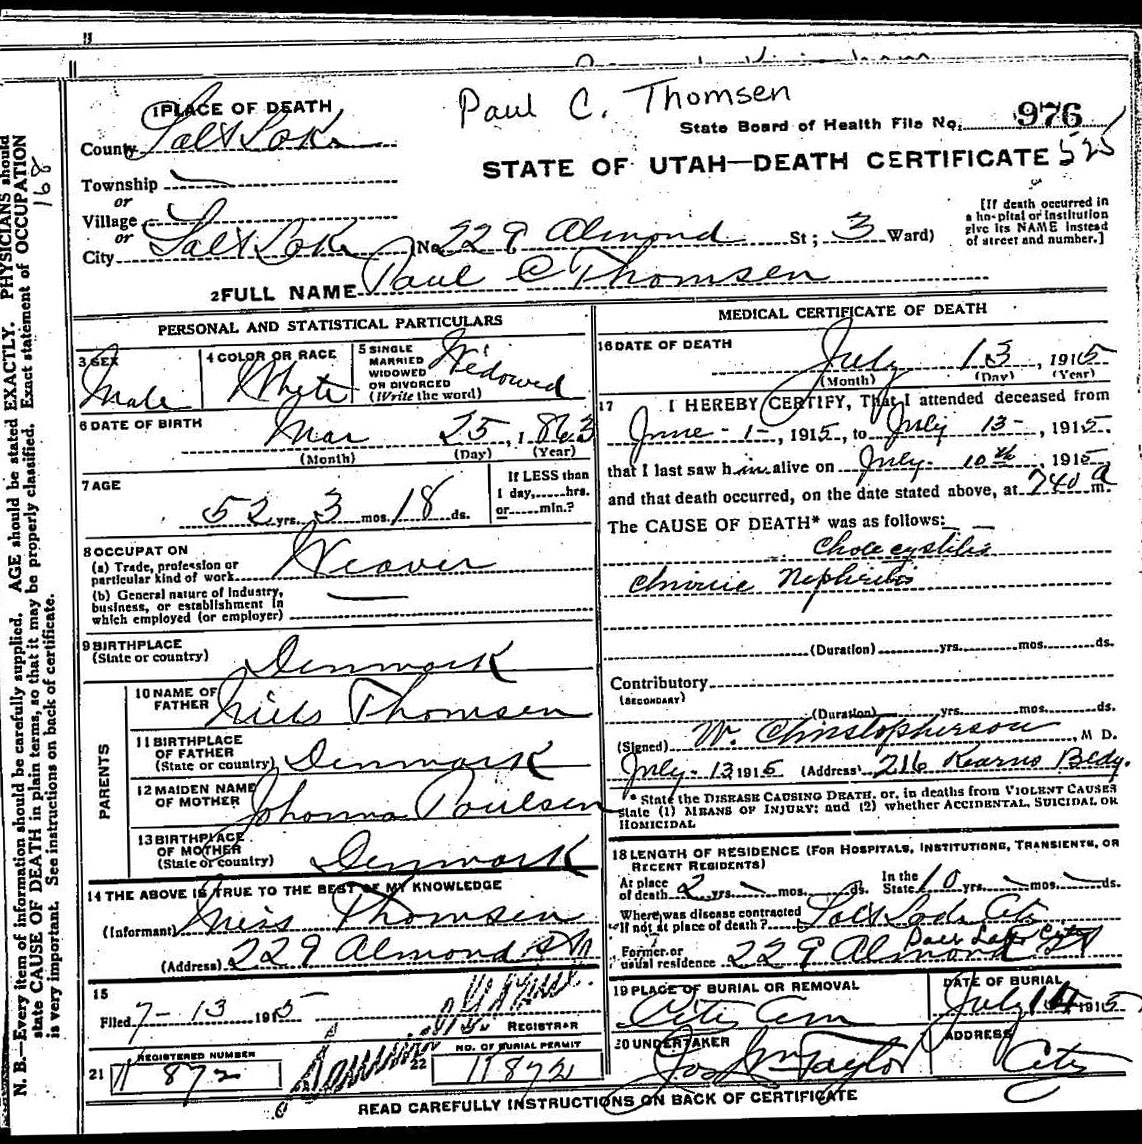 Paul C. Thomsen
State Board of Health File No. 976
525
STATE OF UTAH—DEATH CERTIFICATE
1 PLACE OF DEATH
County Salt Lake
Township
or
Village
or
City Salt Lake (No. 229 Almond St; 3 Ward)
[If death occurred in
a hospital or institution
give its NAME instead
of street and number.]
2 FULL NAME Paul C Thomsen
PERSONAL AND STATISTICAL PARTICULARS
3 SEX
Male
4 COLOR OR RACE
White
5 SINGLE
MARRIED
WIDOWED
OR DIVORCED
(Write the word)
Widowed
6 DATE OF BIRTH
Mar 25, 1863
(Month) (Day) (Year)
7 AGE
52 yrs. 3 mos. 18 ds.
If LESS than
1 day,......hrs.
or......min.?
8 OCCUPATION
(a) Trade, profession or
particular kind of work Weaver
(b) General nature of industry,
business, or establishment in
which employed (or employer)
9 BIRTHPLACE
(State or country) Denmark
PARENTS
10 NAME OF
FATHER Niels Thomsen
11 BIRTHPLACE
OF FATHER
(State or country) Denmark
12 MAIDEN NAME
OF MOTHER Johonna Poulsen
13 BIRTHPLACE
OF MOTHER
(State or country) Denmark
14 THE ABOVE IS TRUE TO THE BEST OF MY KNOWLEDGE
(Informant) Thomsen
(Address) 229 Almond St
15
Filed 7-13 1915
REGISTRAR
REGISTERED NUMBER
21 H 872
22 NO. OF BURIAL PERMIT
H 872
MEDICAL CERTIFICATE OF DEATH
16 DATE OF DEATH
July 13, 1915
(Month) (Day) (Year)
17 I HEREBY CERTIFY, That I attended deceased from
June - 1 -, 1915, to July 13 -, 1915.
that I last saw him alive on July 10th 1915
and that death occurred, on the date stated above, at 740 a m.
The CAUSE OF DEATH* was as follows:
Cholecystitis
Chronic Nephritis
(Duration) yrs. mos. ds.
Contributory
(SECONDARY)
(Duration) yrs. mos. ds.
(Signed) W. Christopherson, M D.
July - 13 1915 (Address) 216 Kearns Bldg.
* State the DISEASE CAUSING DEATH, or, in deaths from VIOLENT CAUSES
state (1) MEANS OF INJURY; and (2) whether ACCIDENTAL, SUICIDAL OR
HOMICIDAL
18 LENGTH OF RESIDENCE (FOR HOSPITALS, INSTITUTIONS, TRANSIENTS, OR
RECENT RESIDENTS)
At place
of death 2 yrs. mos. ds. In the
State 10 yrs. mos. ds.
Where was disease contracted
if not at place of death? Salt Lake City
Former or
usual residence 229 Almond St
Salt Lake City
19 PLACE OF BURIAL OR REMOVAL
City Cem
DATE OF BURIAL
July 14 1915
20 UNDERTAKER
Jos Wm Taylor
ADDRESS
City
READ CAREFULLY INSTRUCTIONS ON BACK OF CERTIFICATE
N. B.—Every item of information should be carefully supplied. AGE should be stated EXACTLY. PHYSICIANS should
state CAUSE OF DEATH in plain terms, so that it may be properly classified. Exact statement of OCCUPATION
is very important. See instructions on back of certificate.
168